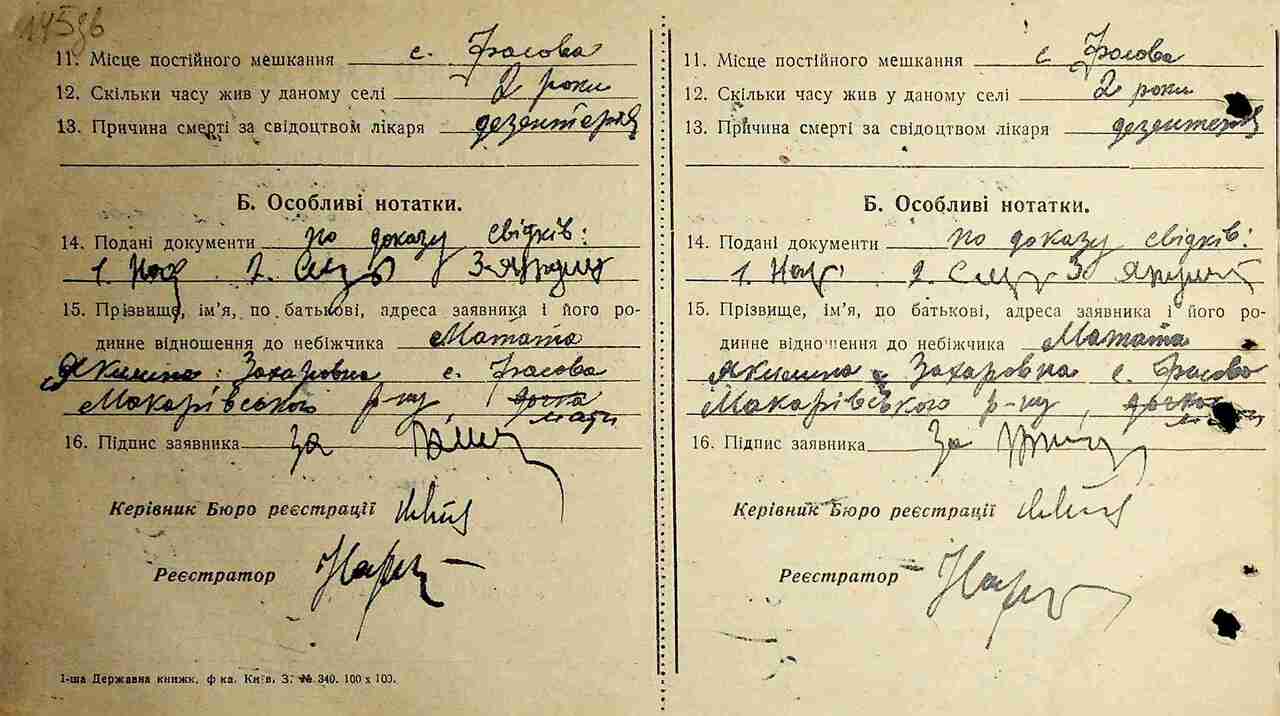 145зв
11. Місце постійного мешкання с. Фасова
12. Скільки часу жив у даному селі 2 роки
13. Причина смерті за свідоцтвом лікаря дезентерія
Б. Особливі нотатки.
14. Подані документи по доказу свідків:
1. 2. 3.
15. Прізвище, ім'я, по батькові, адреса заявника і його ро-
динне відношення до небіжчика
Якилина Захаровна с. Фасова
Макарівського р-ну
мати
16. Підпис заявника за
Керівник Бюро реєстрації
Реєстратор
1-ша Державна книжк. ф-ка. Київ. З. № 340. 100 x 100.
11. Місце постійного мешкання с. Фасова
12. Скільки часу жив у даному селі 2 роки
13. Причина смерті за свідоцтвом лікаря дезентерія
Б. Особливі нотатки.
14. Подані документи по доказу свідків:
1. 2. 3.
15. Прізвище, ім'я, по батькові, адреса заявника і його ро-
динне відношення до небіжчика
Якилина Захаровна с. Фасова
Макарівського р-ну,
мати
16. Підпис заявника за
Керівник Бюро реєстрації
Реєстратор